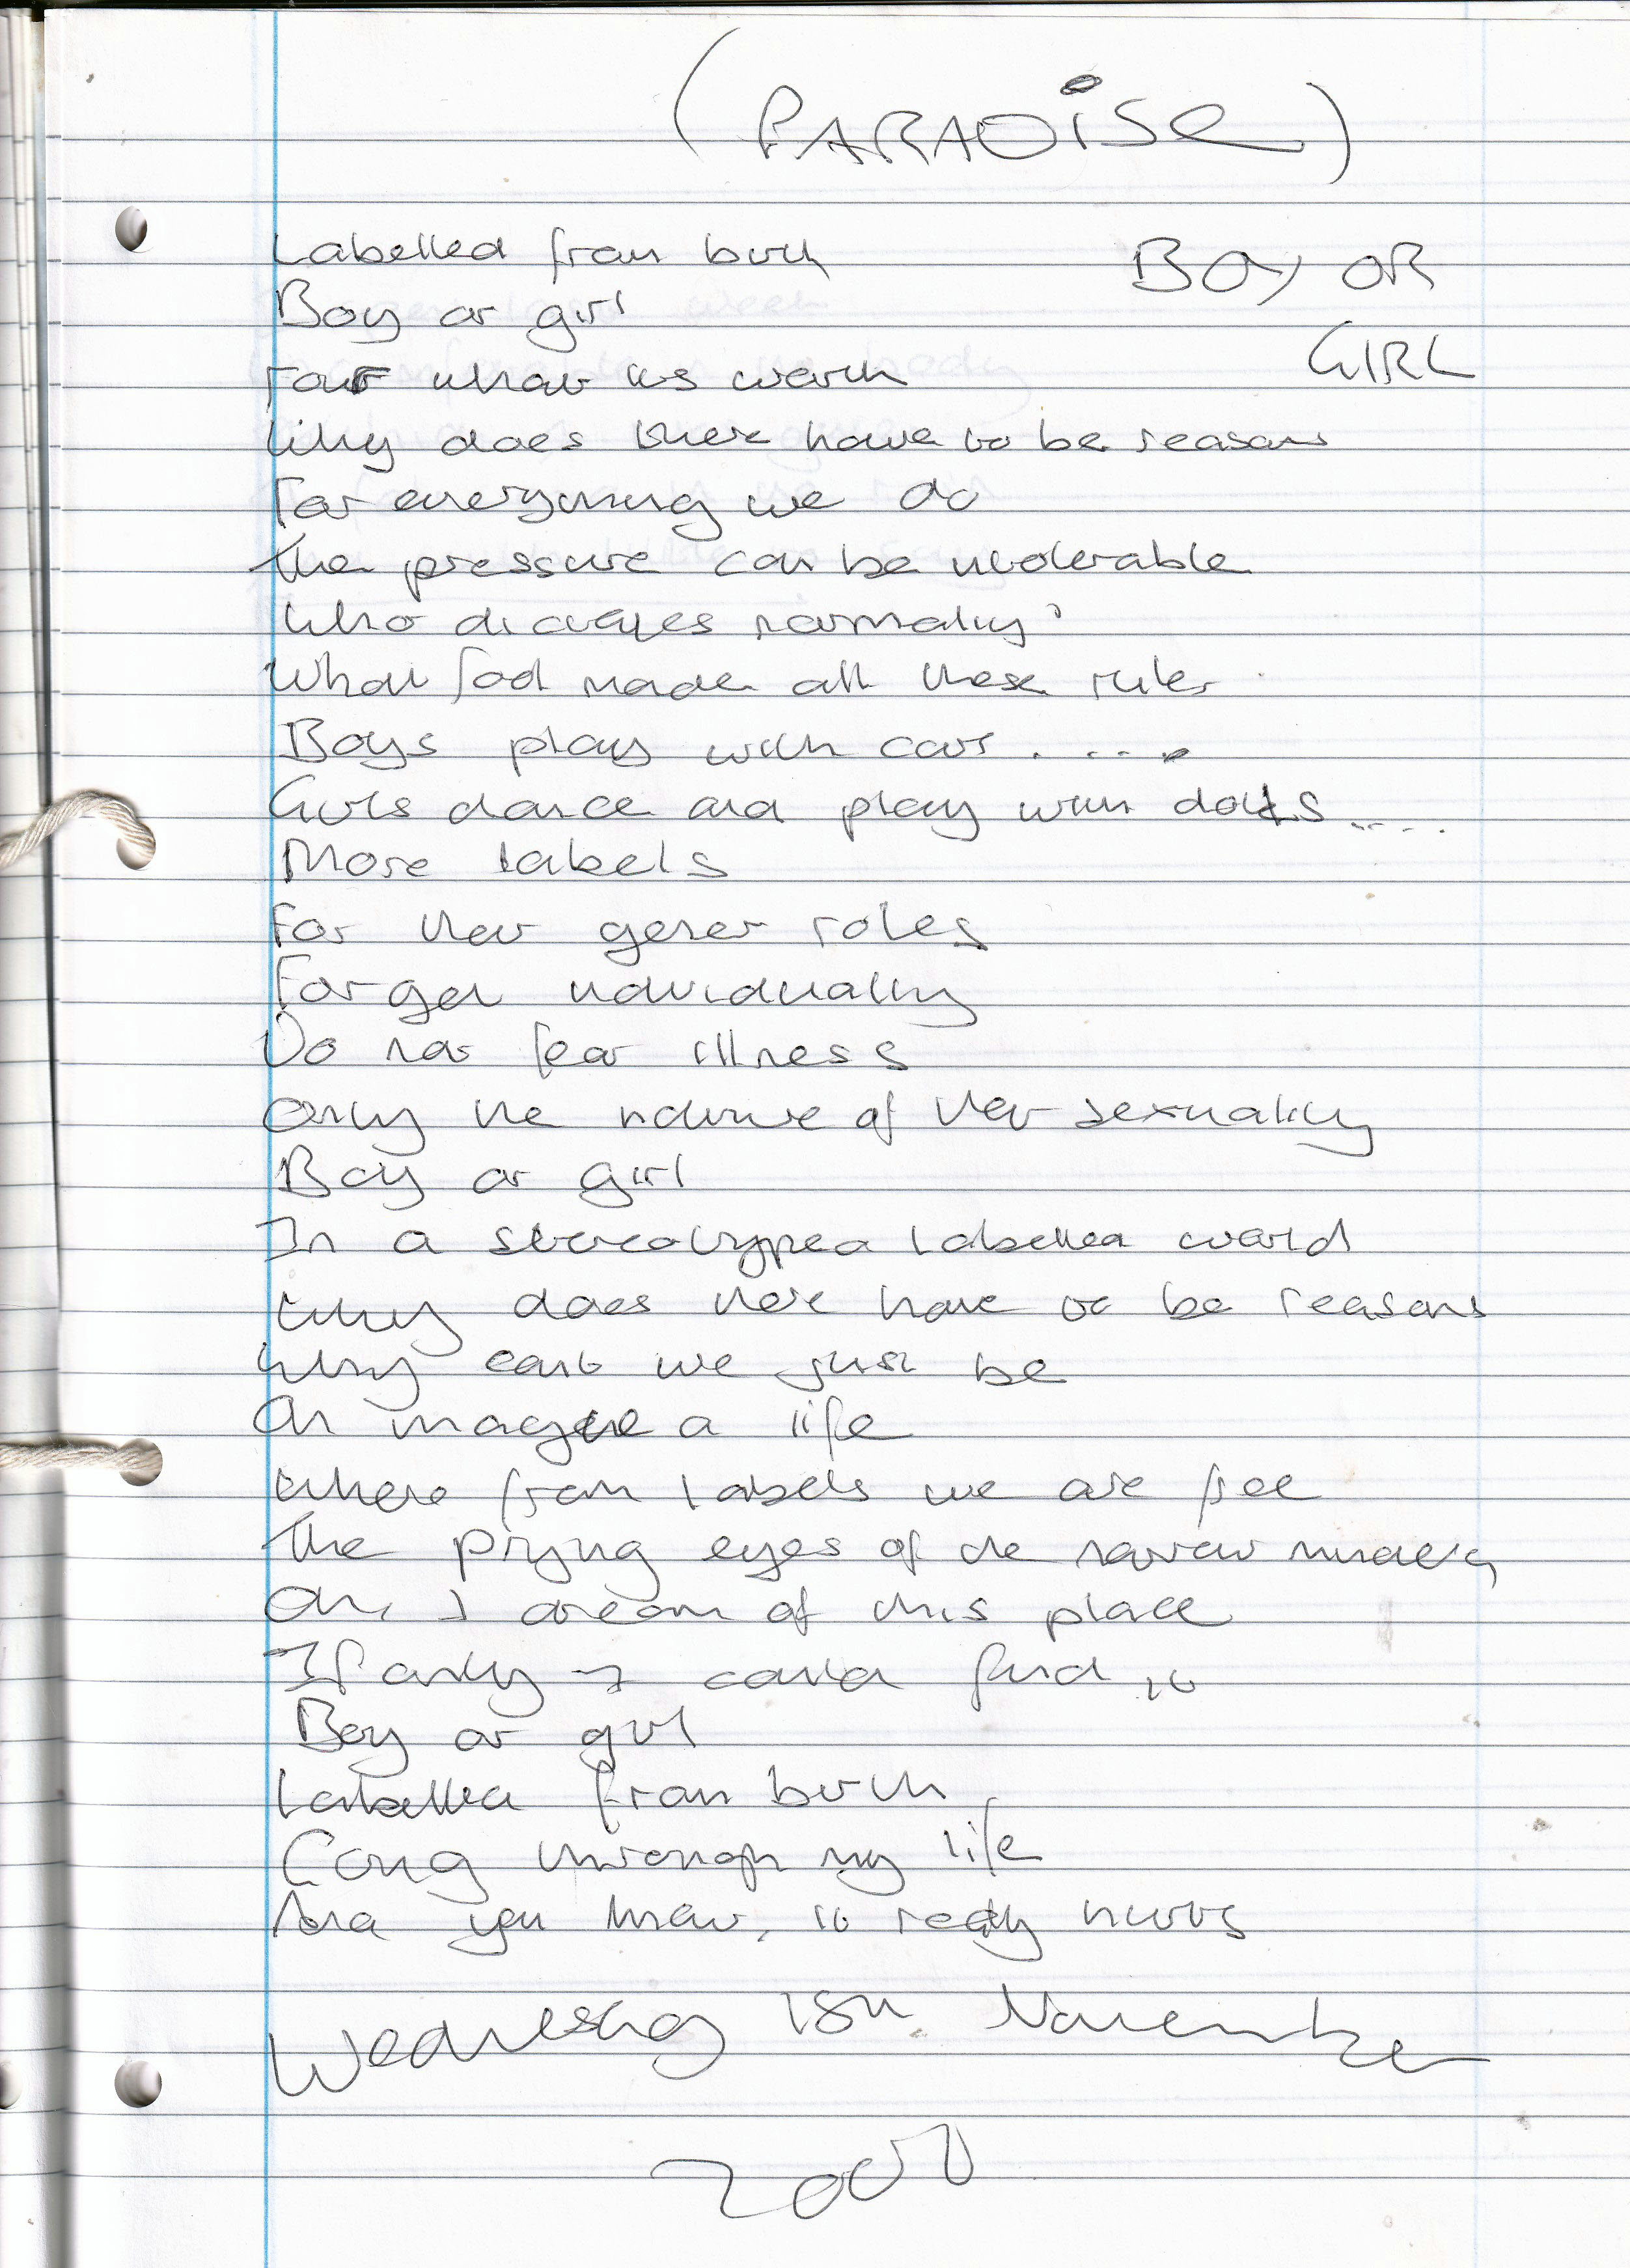 (PARADISE)
Labelled from birth
BOY OR
Boy or girl
GIRL
For what its worth
Why does there have to be reasons
For everything we do
The pressure can be intolerable
Who dictates normality?
What God made all these rules
Boys play with cars.....
Girls dance and play with dolls.....
More labels
For their gener roles
Forget individuality
Do not fear illness
Only the nature of their sexuality
Boy or girl
In a stereotyped labelled world
Why does there have to be reasons
Why cant we just be
Oh imagine a life
Where from labels we are free
The prying eyes of the narrow minded,
Oh, I dream of this place
If only I could find it
Boy or girl
Labelled from birth
Going through my life
And you know, it really hurts
Wednesday 15th November
2000